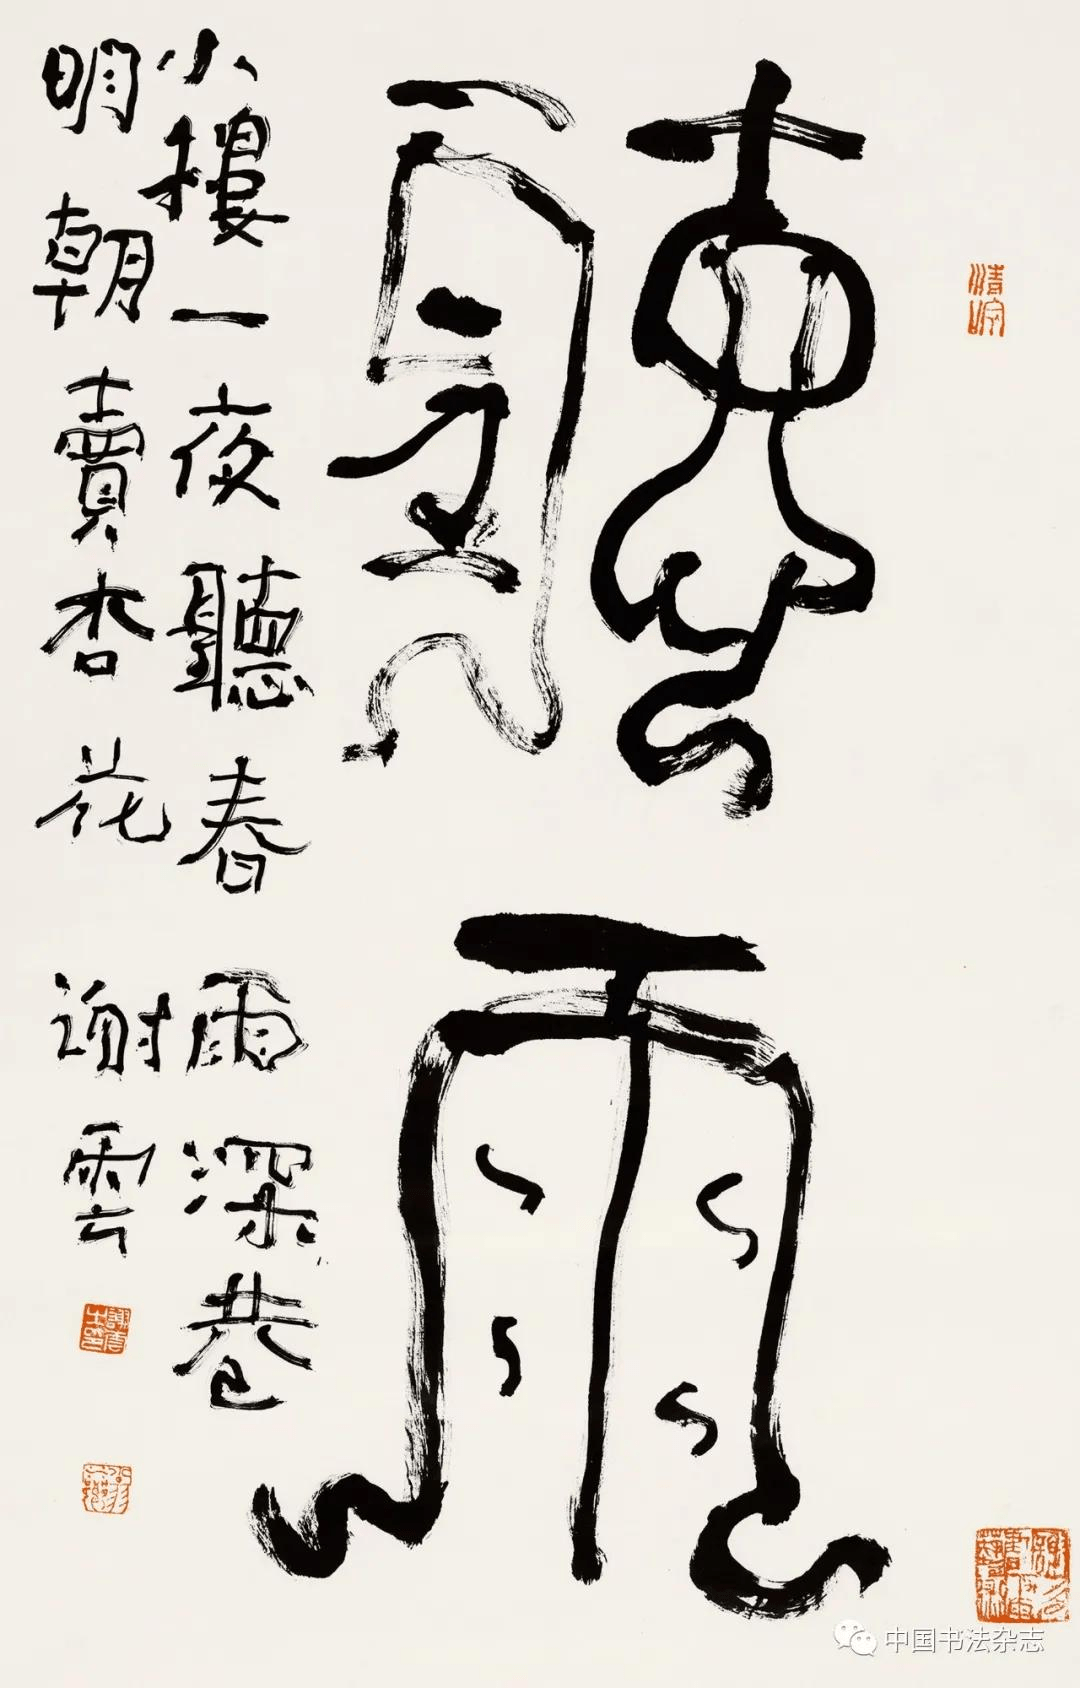 聽雨
小樓一夜聽春雨深巷
明朝賣杏花
謝雲
中国书法杂志